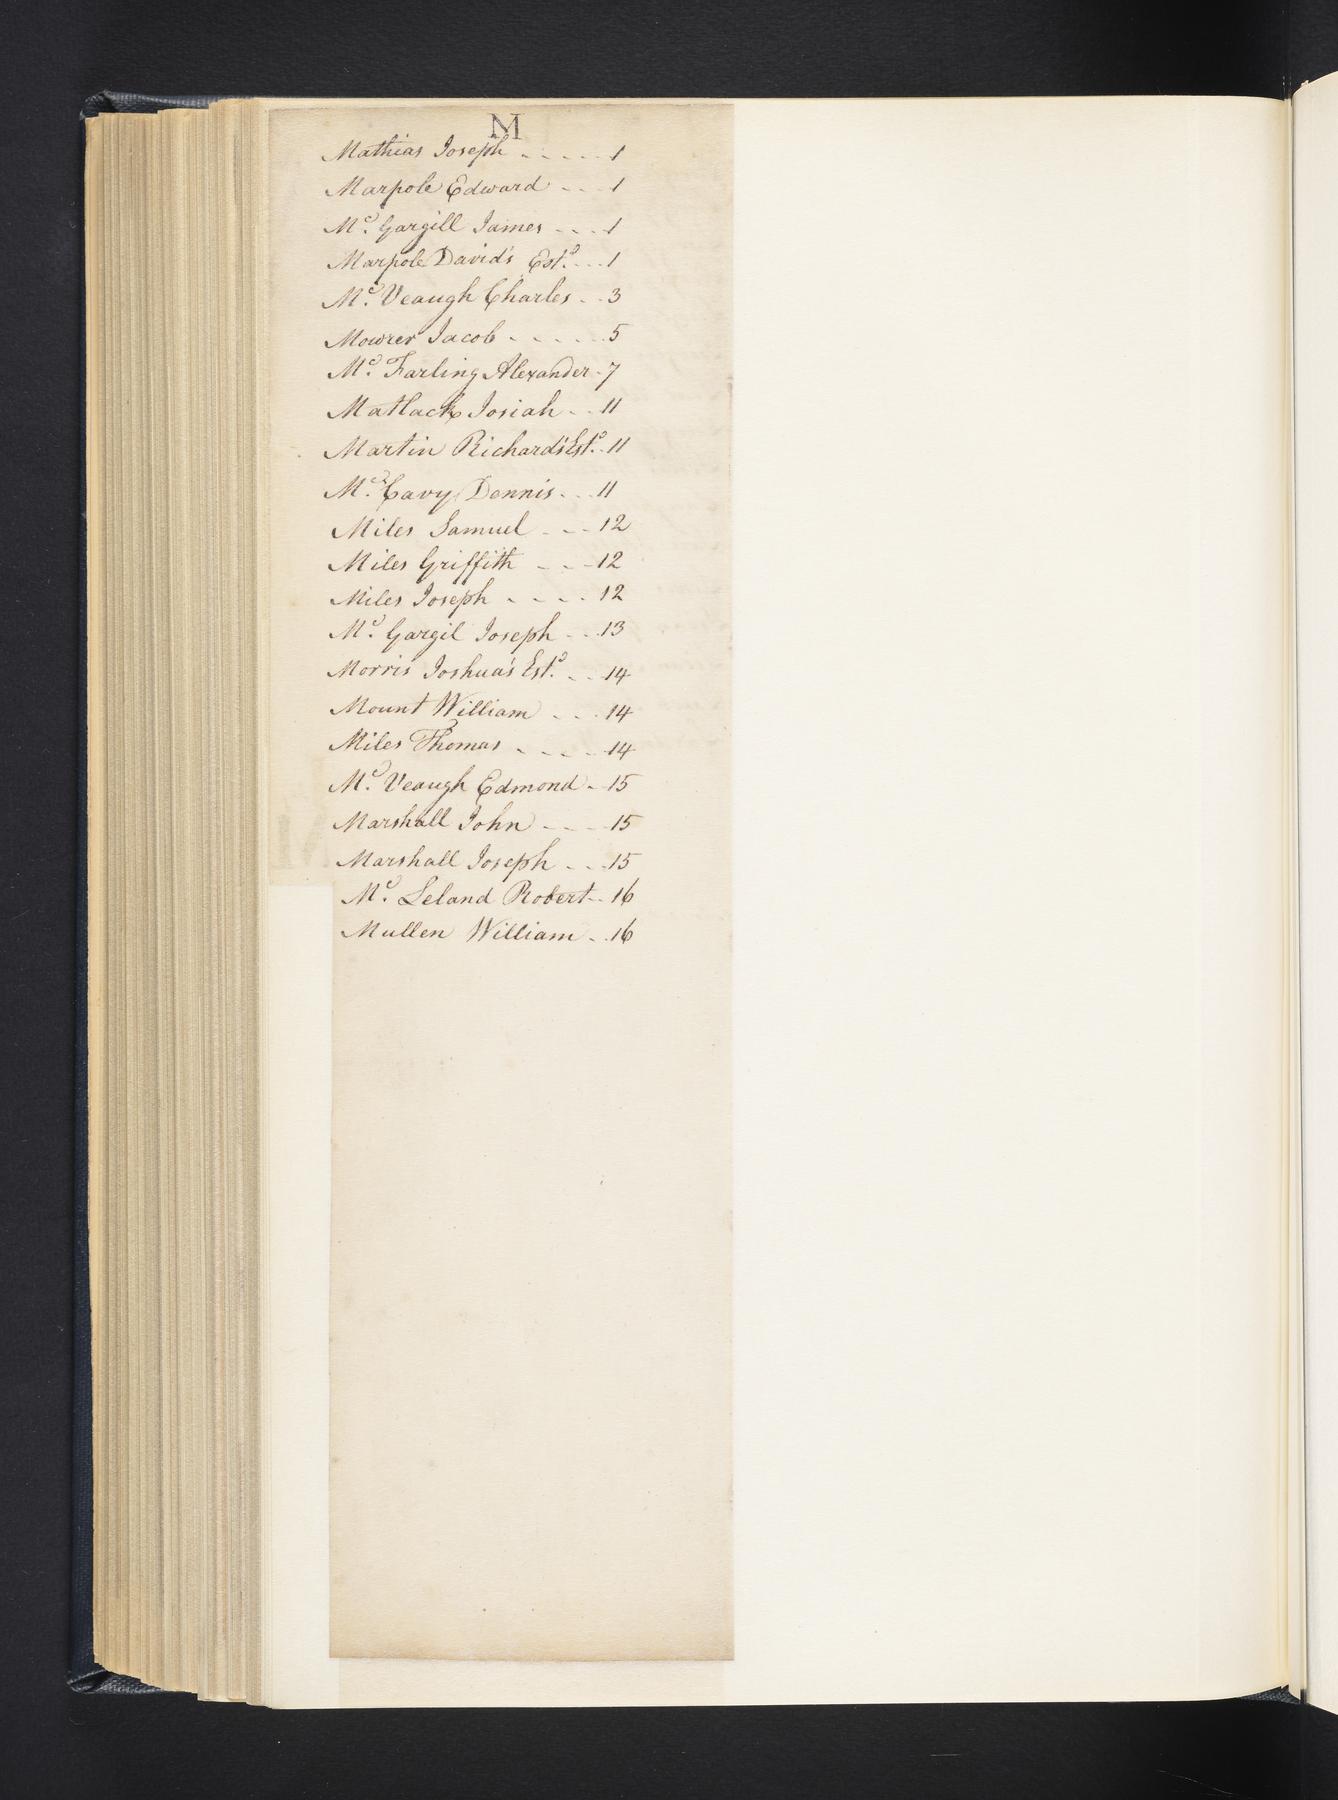 M
Mathias Joseph - - - - - 1
Marpole Edward - - - 1
Mc. Gargill James - - - 1
Marpole David's Estd. - - - 1
Mc. Veaugh Charles - - 3
Mowrer Jacob - - - - - - 5
Mc. Farling Alexander - 7
Matlack Josiah - - 11
Martin Richard's Estd. - 11
Mc. Cavy Dennis - - - 11
Miles Samuel - - - 12
Miles Griffith - - - 12
Miles Joseph - - - - 12
Mc. Gargil Joseph - - - 13
Morris Joshua's Estd. - - - 14
Mount William - - - 14
Miles Thomas - - - - - 14
Mc. Veaugh Edmond - - 15
Marshall John - - - - 15
Marshall Joseph - - - 15
Mc. Leland Robert - - 16
Mullen William - - 16